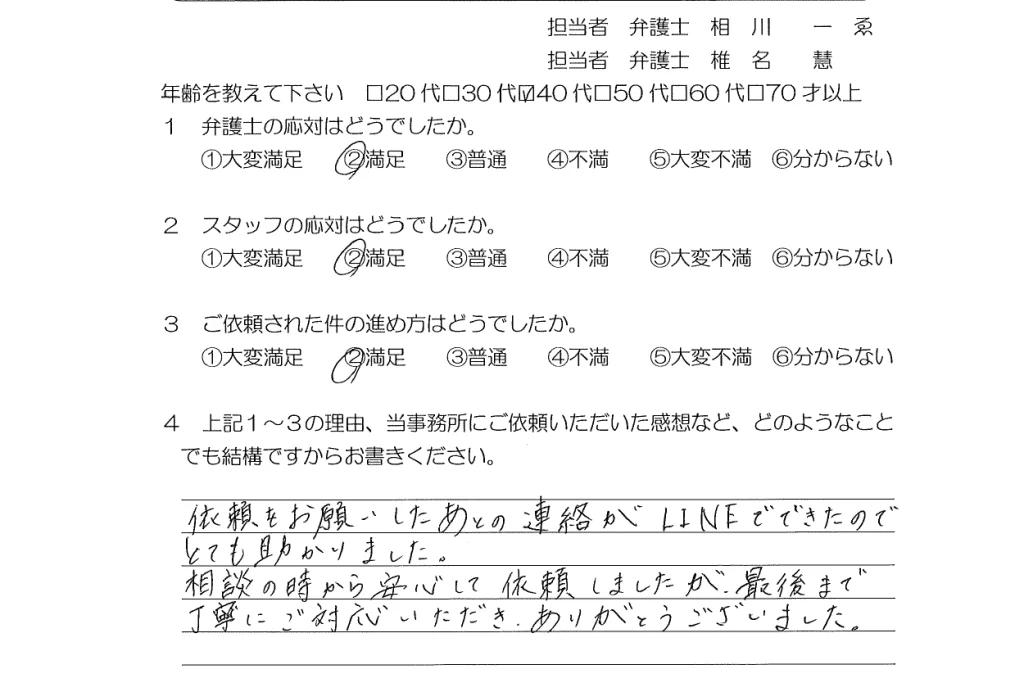 担当者 弁護士 相 川 一 ゑ
担当者 弁護士 椎 名 慧
年齢を教えて下さい □20代□30代☑40代□50代□60代□70才以上
1 弁護士の応対はどうでしたか。
①大変満足 ②満足 ③普通 ④不満 ⑤大変不満 ⑥分からない
2 スタッフの応対はどうでしたか。
①大変満足 ②満足 ③普通 ④不満 ⑤大変不満 ⑥分からない
3 ご依頼された件の進め方はどうでしたか。
①大変満足 ②満足 ③普通 ④不満 ⑤大変不満 ⑥分からない
4 上記1～3の理由、当事務所にご依頼いただいた感想など、どのようなこと
でも結構ですからお書きください。
依頼をお願いしたあとの連絡がLINEでできたので
とても助かりました。
相談の時から安心して依頼しましたが、最後まで
丁寧にご対応いただき、ありがとうございました。